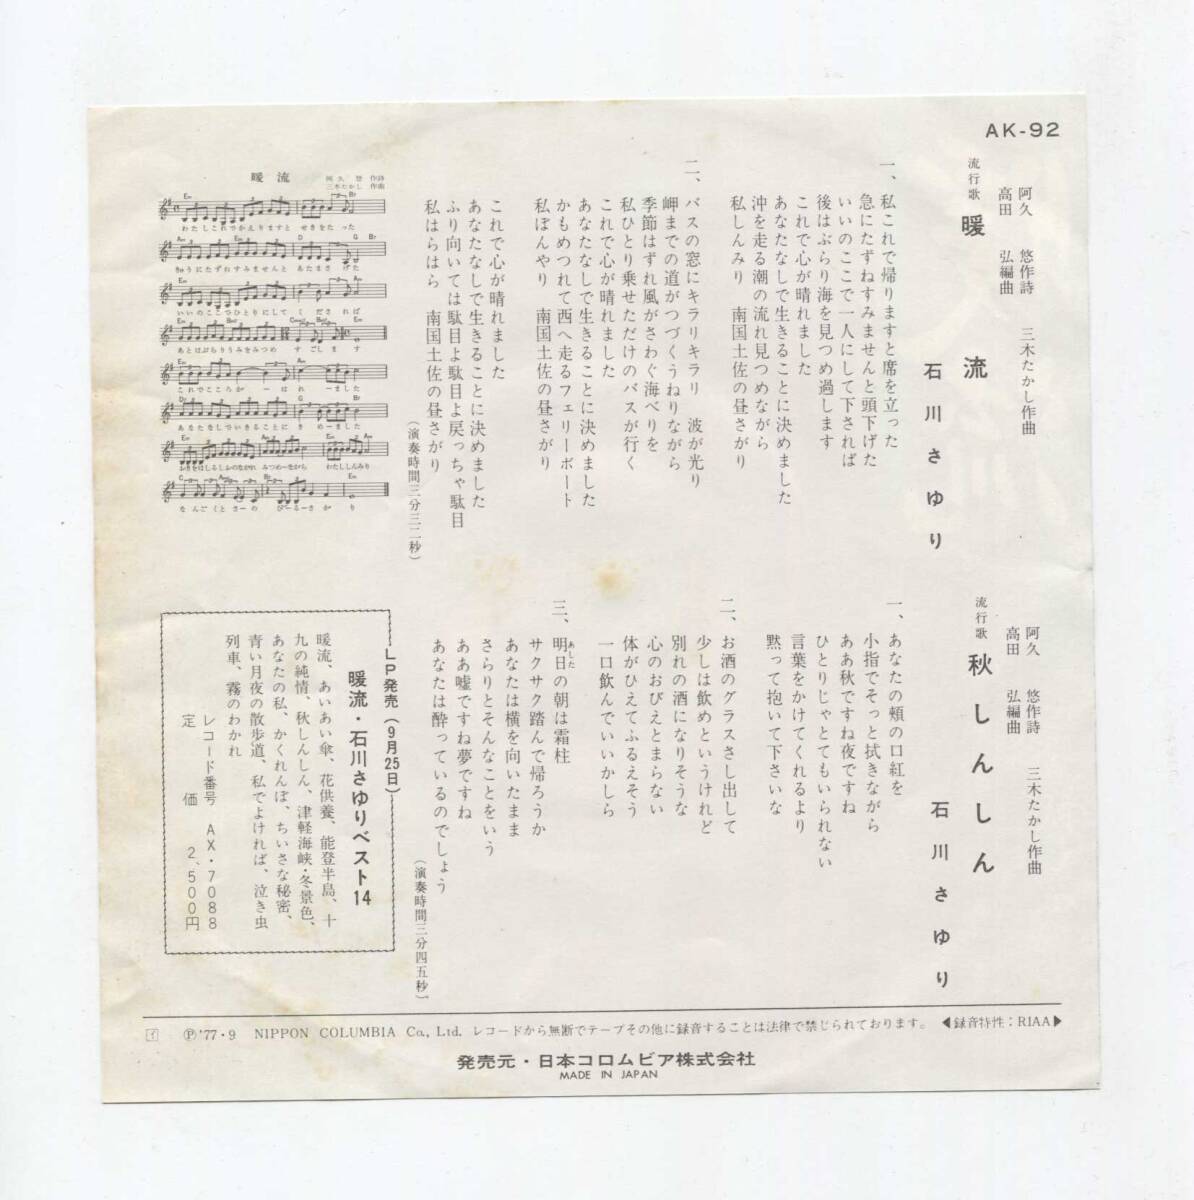 AK-92
流行歌 暖流
阿久 悠作詩 三木たかし作曲
高田 弘編曲
石川さゆり
一、私これで帰りますと席を立った
急にたずねすみませんと頭下げた
いいのここで一人にして下されば
後はぶらり海を見つめ過します
これで心が晴れました
あなたなしで生きることに決めました
沖を走る潮の流れ見つめながら
私しんみり 南国土佐の昼さがり
二、バスの窓にキラリキラリ 波が光り
岬までの道がつづくうねりながら
季節はずれ風がさわぐ海べりを
私ひとり乗せただけのバスが行く
これで心が晴れました
あなたなしで生きることに決めました
かもめつれて西へ走るフェリーボート
私ぼんやり 南国土佐の昼さがり
これで心が晴れました
あなたなしで生きることに決めました
ふり向いては駄目よ駄目よ戻っちゃ駄目
私はらはら 南国土佐の昼さがり
(演奏時間三分三二秒)
暖流
阿久 悠 作詩
三木たかし 作曲
わたしこれでかえりますと せきをたった
きゅうにたずねすみませんと あたまさげた
いいのここでひとりにして くだされば
あとはぶらりうみをみつめ すごします
これでこころがーはれーました
あなたなしでいきることに きめーました
おきをはしるしおのながれ みつめーながら わたししんみり
なんごくとさーの ひーるーさがり
流行歌 秋しんしん
阿久 悠作詩 三木たかし作曲
高田 弘編曲
石川さゆり
一、あなたの頬の口紅を
小指でそっと拭きながら
ああ秋ですね夜ですね
ひとりじゃとてもいられない
言葉をかけてくれるより
黙って抱いて下さいな
二、お酒のグラスさし出して
少しは飲めというけれど
別れの酒になりそうな
心のおびえとまらない
体がひえてふるえそう
一口飲んでいいかしら
三、明日の朝は霜柱
あした
サクサク踏んで帰ろうか
あなたは横を向いたまま
さらりとそんなことをいう
ああ嘘ですね夢ですね
あなたは酔っているのでしょう
(演奏時間三分四五秒)
LP発売(9月25日)
暖流・石川さゆりベスト14
暖流、あいあい傘、花供養、能登半島、十
九の純情、秋しんしん、津軽海峡・冬景色、
あなたの私、かくれんぼ、ちいさな秘密、
青い月夜の散歩道、私でよければ、泣き虫
列車、霧のわかれ
レコード番号 AX・7088
定価 2,500円
f Ⓟ'77・9 NIPPON COLUMBIA Co., Ltd. レコードから無断でテープその他に録音することは法律で禁じられております。 ◀録音特性：RIAA▶
発売元・日本コロムビア株式会社
MADE IN JAPAN